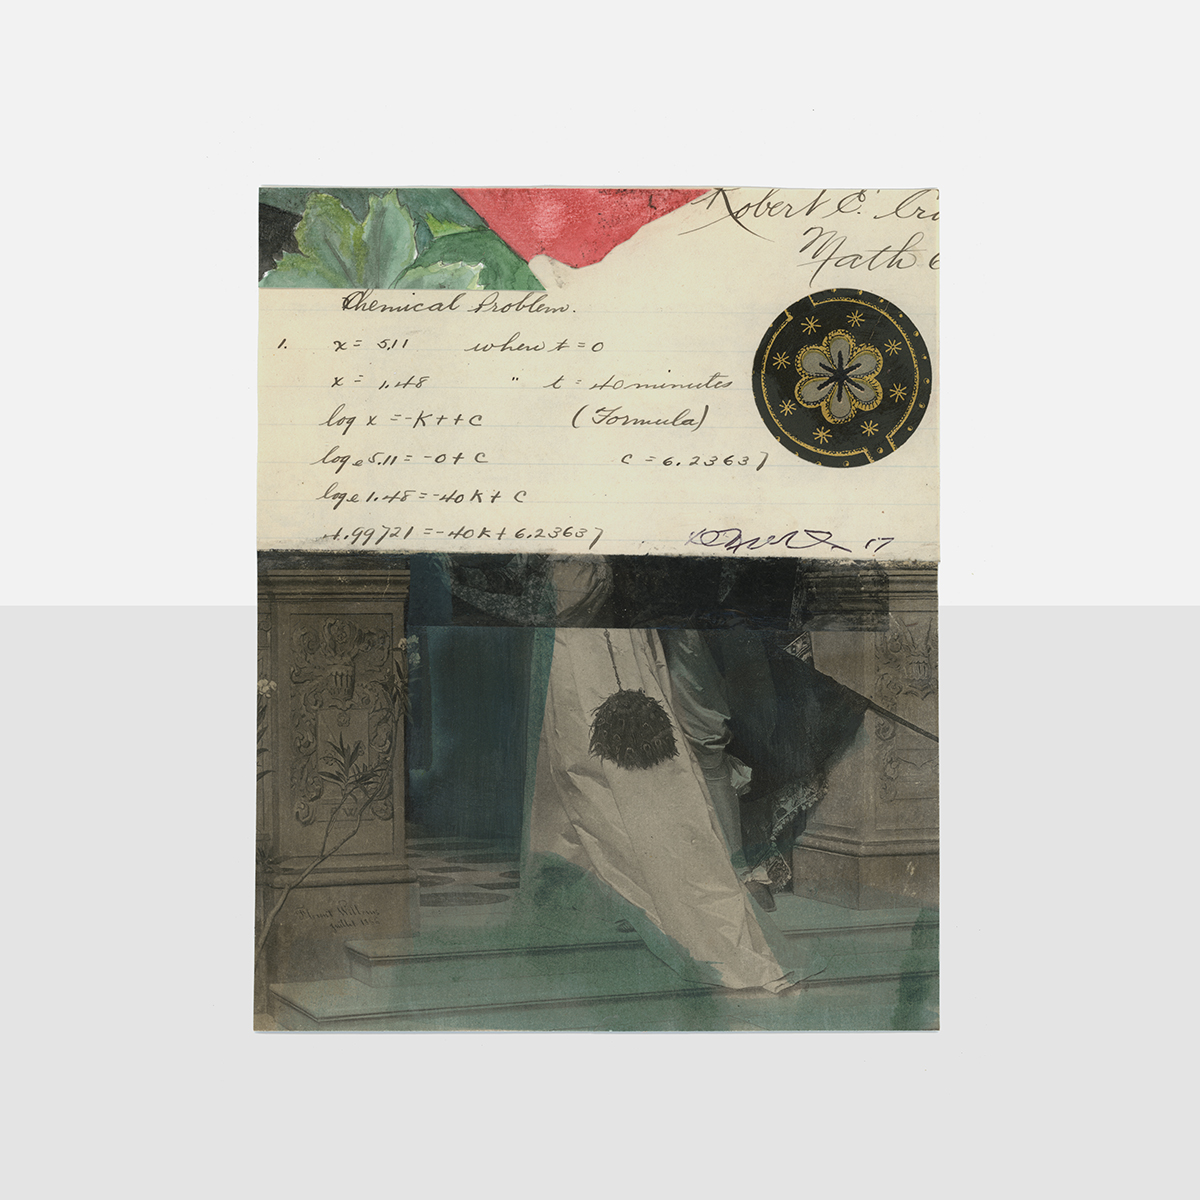 Robert E. Cri
Math 6
Chemical Problem.
1. x = 5.11 when t = 0
x = 1.48 " t = 40 minutes
log x = -Kt + C (Formula)
loge 5.11 = -0 + C C = 6.23637
loge 1.48 = -40K + C
4.99721 = -40K + 6.23637
17
Juillet